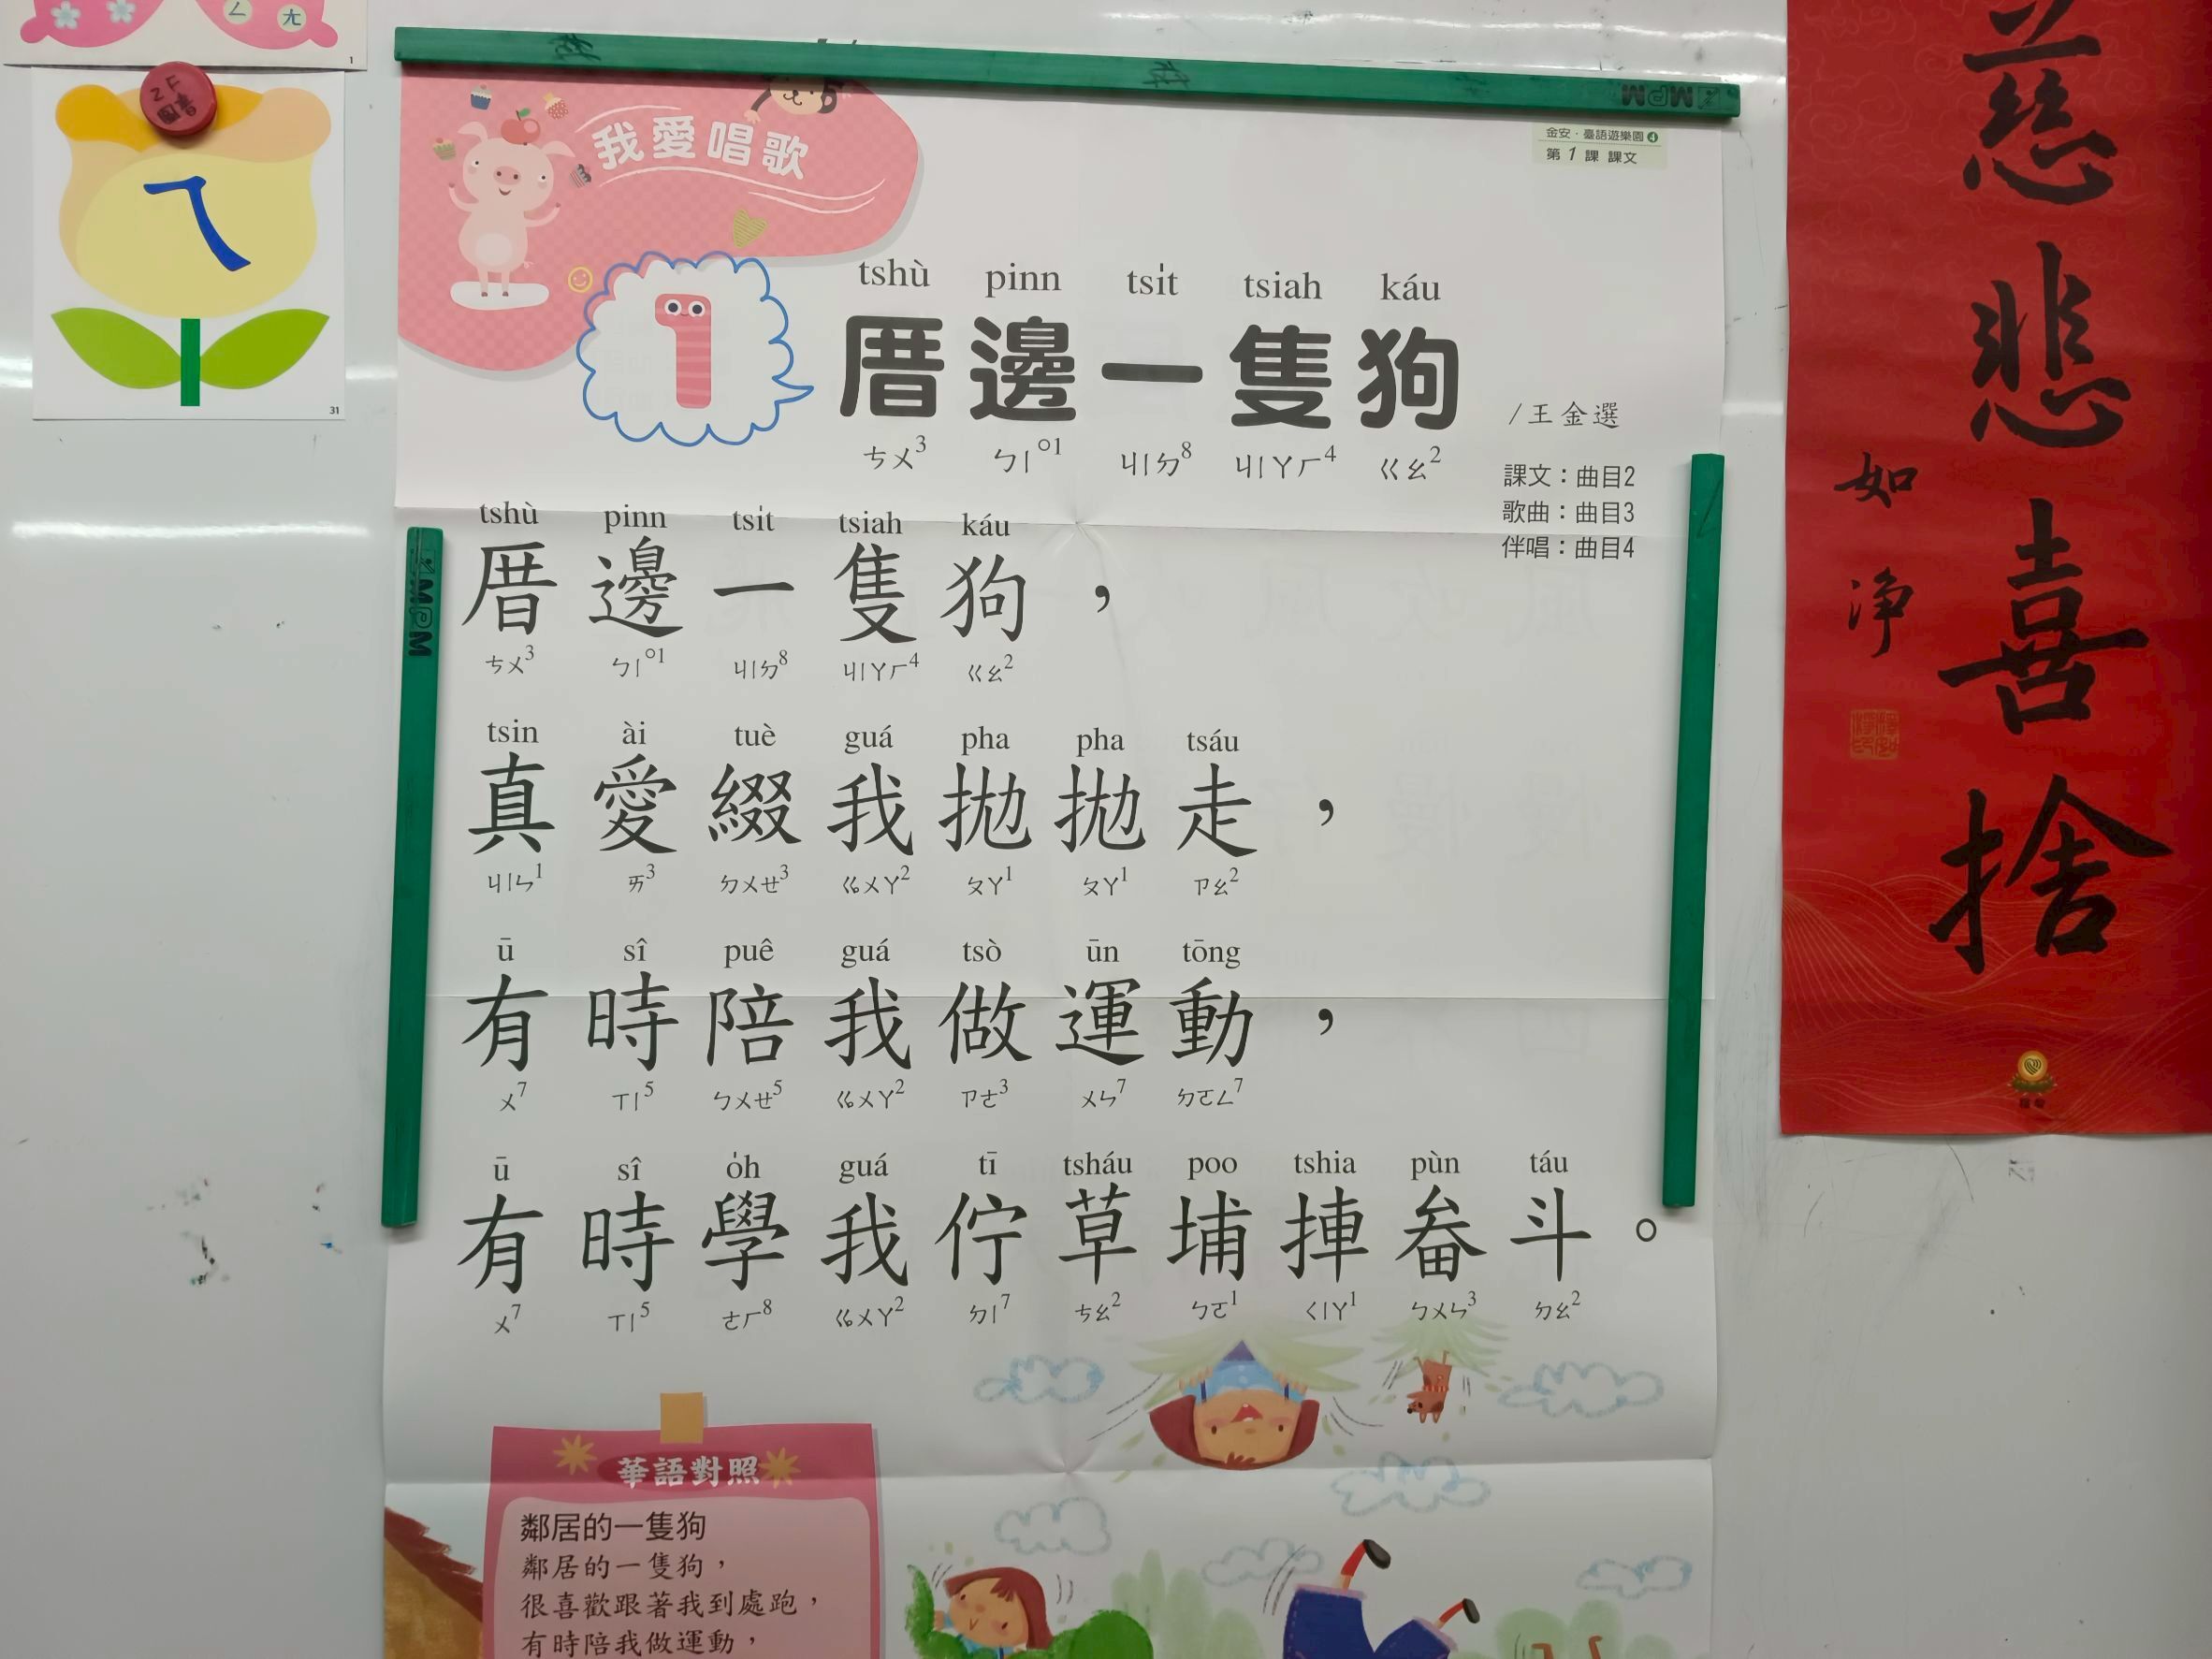 ㄥ ㄤ
1
ZF
圖書
ㄟ
31
MPM
我愛唱歌
金安．臺語遊樂園4
第1課 課文
1
tshù pinn tsi̍t tsiah káu
厝邊一隻狗
ㄘㄨ3 ㄅㄧ○1 ㄐㄧㄉ8 ㄐㄧㄚㄏ4 ㄍㄠ2
/王金選
課文：曲目2
歌曲：曲目3
伴唱：曲目4
MPM
tshù pinn tsi̍t tsiah káu
厝邊一隻狗，
ㄘㄨ3 ㄅㄧ○1 ㄐㄧㄉ8 ㄐㄧㄚㄏ4 ㄍㄠ2
tsin ài tuè guá pha pha tsáu
真愛綴我拋拋走，
ㄐㄧㄣ1 ㄞ3 ㄉㄨㄝ3 ㆣㄨㄚ2 ㄆㄚ1 ㄆㄚ1 ㄗㄠ2
ū sî puê guá tsò ūn tōng
有時陪我做運動，
ㄨ7 ㄒㄧ5 ㄅㄨㄝ5 ㆣㄨㄚ2 ㄗㄜ3 ㄨㄣ7 ㄉㆲ7
ū sî o̍h guá tī tsháu poo tshia pùn táu
有時學我佇草埔捙畚斗。
ㄨ7 ㄒㄧ5 ㄜㄏ8 ㆣㄨㄚ2 ㄉㄧ7 ㄘㄠ2 ㄅㆦ1 ㄑㄧㄚ1 ㄅㄨㄣ3 ㄉㄠ2
華語對照
鄰居的一隻狗
鄰居的一隻狗，
很喜歡跟著我到處跑，
有時陪我做運動，
慈悲喜捨
如淨